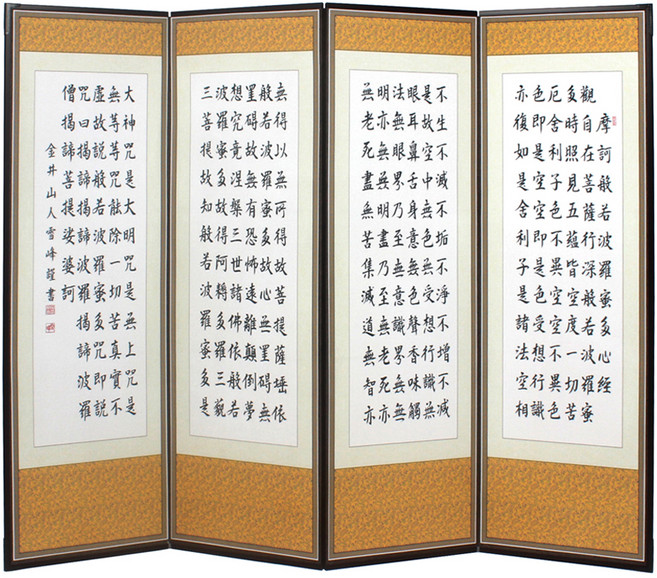 摩訶般若波羅蜜多心經
觀自在菩薩行深般若波羅蜜
多時照見五蘊皆空度一切苦
厄舍利子色不異空空不異色
色即是空空即是色受想行識
亦復如是舍利子是諸法空相
不生不滅不垢不淨不增不減
是故空中無色無受想行識無
眼耳鼻舌身意無色聲香味觸
法無眼界乃至無意識界無無
明亦無無明盡乃至無老死亦
無老死盡無苦集滅道無智亦
無得以無所得故菩提薩埵依
般若波羅蜜多故心無罣礙無
罣礙故無有恐怖遠離顛倒夢
想究竟涅槃三世諸佛依般若
波羅蜜多故得阿耨多羅三藐
三菩提故知般若波羅蜜多是
大神咒是大明咒是無上咒是
無等等咒能除一切苦真實不
虛故說般若波羅蜜多咒即說
咒曰揭諦揭諦波羅揭諦波羅
僧揭諦菩提娑婆訶
金井山人雪峰謹書